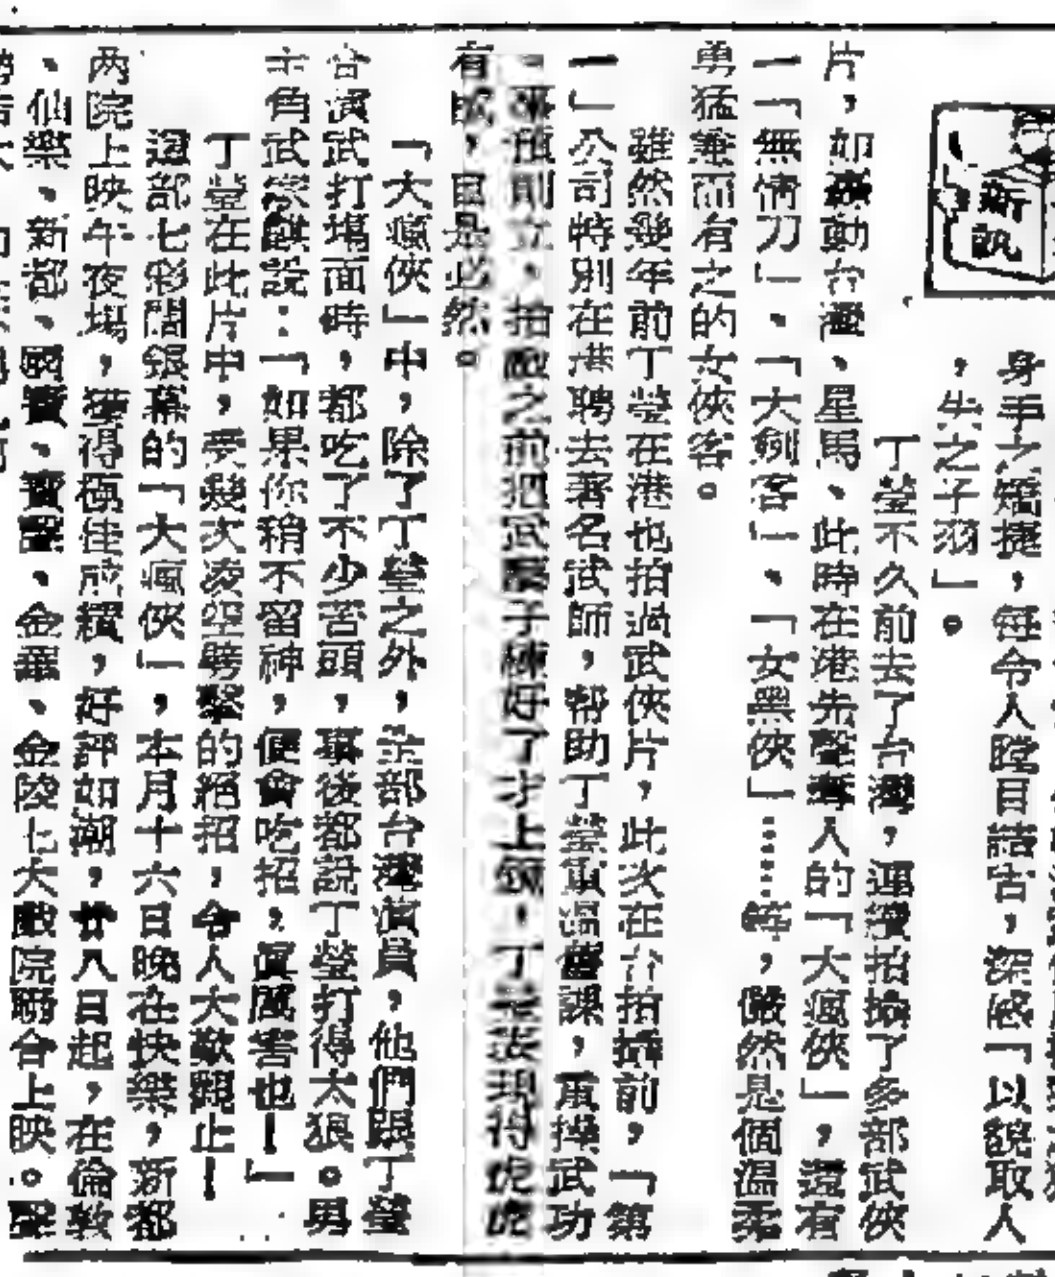 新訊
身手之矯捷，每令人瞠目結舌，深感「以貌取人
，失之子羽」。
丁瑩不久前去了台灣，連續拍攝了多部武俠
片，如轟動台灣、星馬、此時在港先聲奪人的「大瘋俠」，還有
「無情刀」、「大劍客」、「女黑俠」……等，儼然是個溫柔
勇猛兼而有之的女俠客。
雖然幾年前丁瑩在港也拍過武俠片，此次在台拍攝前，「第
一」公司特別在港聘去著名武師，幫助丁瑩重溫舊課，重操武功
。事預則立，拍戲之前把武醫子練好了才上鏡，丁瑩表現得虎虎
有威，自是必然。
「大瘋俠」中，除了丁瑩之外，全部台灣演員，他們跟丁瑩
合演武打場面時，都吃了不少苦頭，事後都說丁瑩打得太狠。男
主角武家麒說：「如果你稍不留神，便會吃招，真厲害也！」
丁瑩在此片中，耍幾次凌空劈擊的絕招，令人大歎觀止！
這部七彩闊銀幕的「大瘋俠」，本月十六日晚在快樂，新都
两院上映午夜場，獲得極佳成績，好評如潮，廿八日起，在倫敦
、仙樂、新都、國賓、寶聲、金華、金陵七大戲院聯合上映。